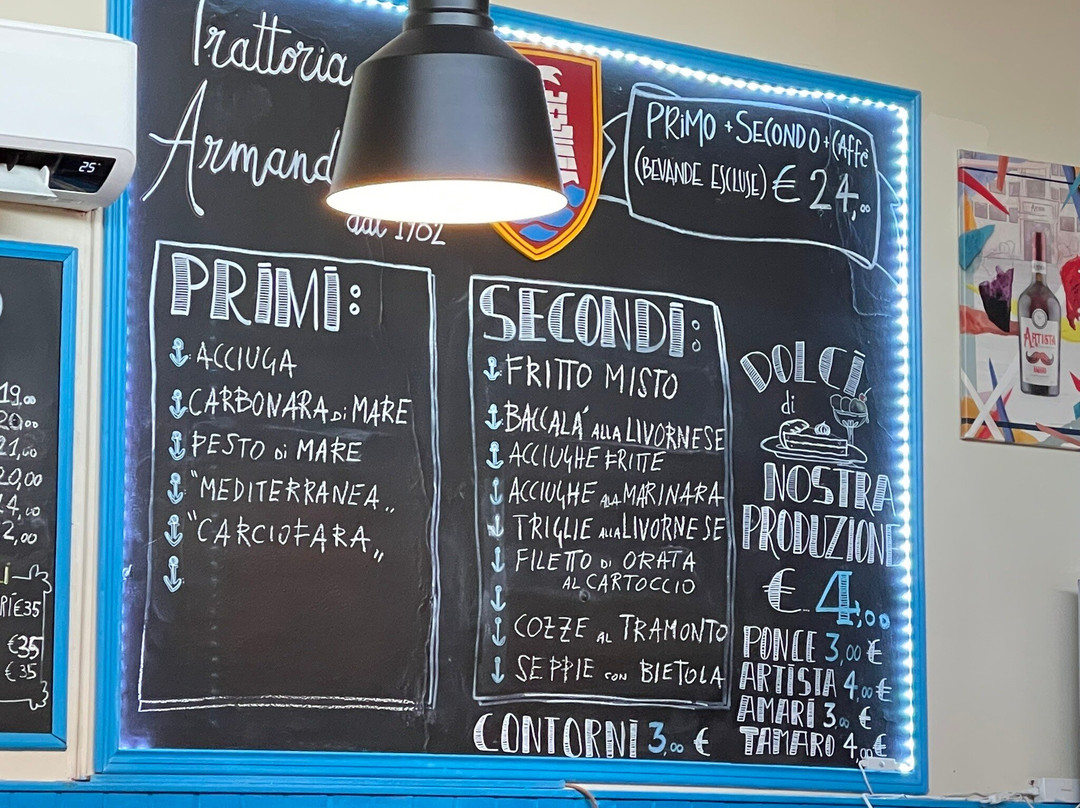 Trattoria
Armand
PRIMO + SECONDO + CAFFè
(BEVANDE ESCLUSE) € 24,00
25°
PRIMI:
ACCIUGA
CARBONARA di MARE
PESTO di MARE
"MEDITERRANEA"
"CARCIOFARA"
SECONDI:
FRITTO MISTO
BACCALÁ ALLA LIVORNESE
ACCIUGHE FRITTE
ACCIUGHE ALLA MARINARA
TRIGLIE ALLA LIVORNESE
FILETTO DI ORATA
AL CARTOCCIO
COZZE AL TRAMONTO
SEPPIE CON BIETOLA
CONTORNI 3,00 €
DOLCI
di
NOSTRA
PRODUZIONE
€ 4,00
PONCE 3,00 €
ARTISTA 4,00 €
AMARI 3,00 €
TAMARO 4,00 €
ARTISTA
19,00
20,00
21,00
20,00
2,00
€35
€35
€35